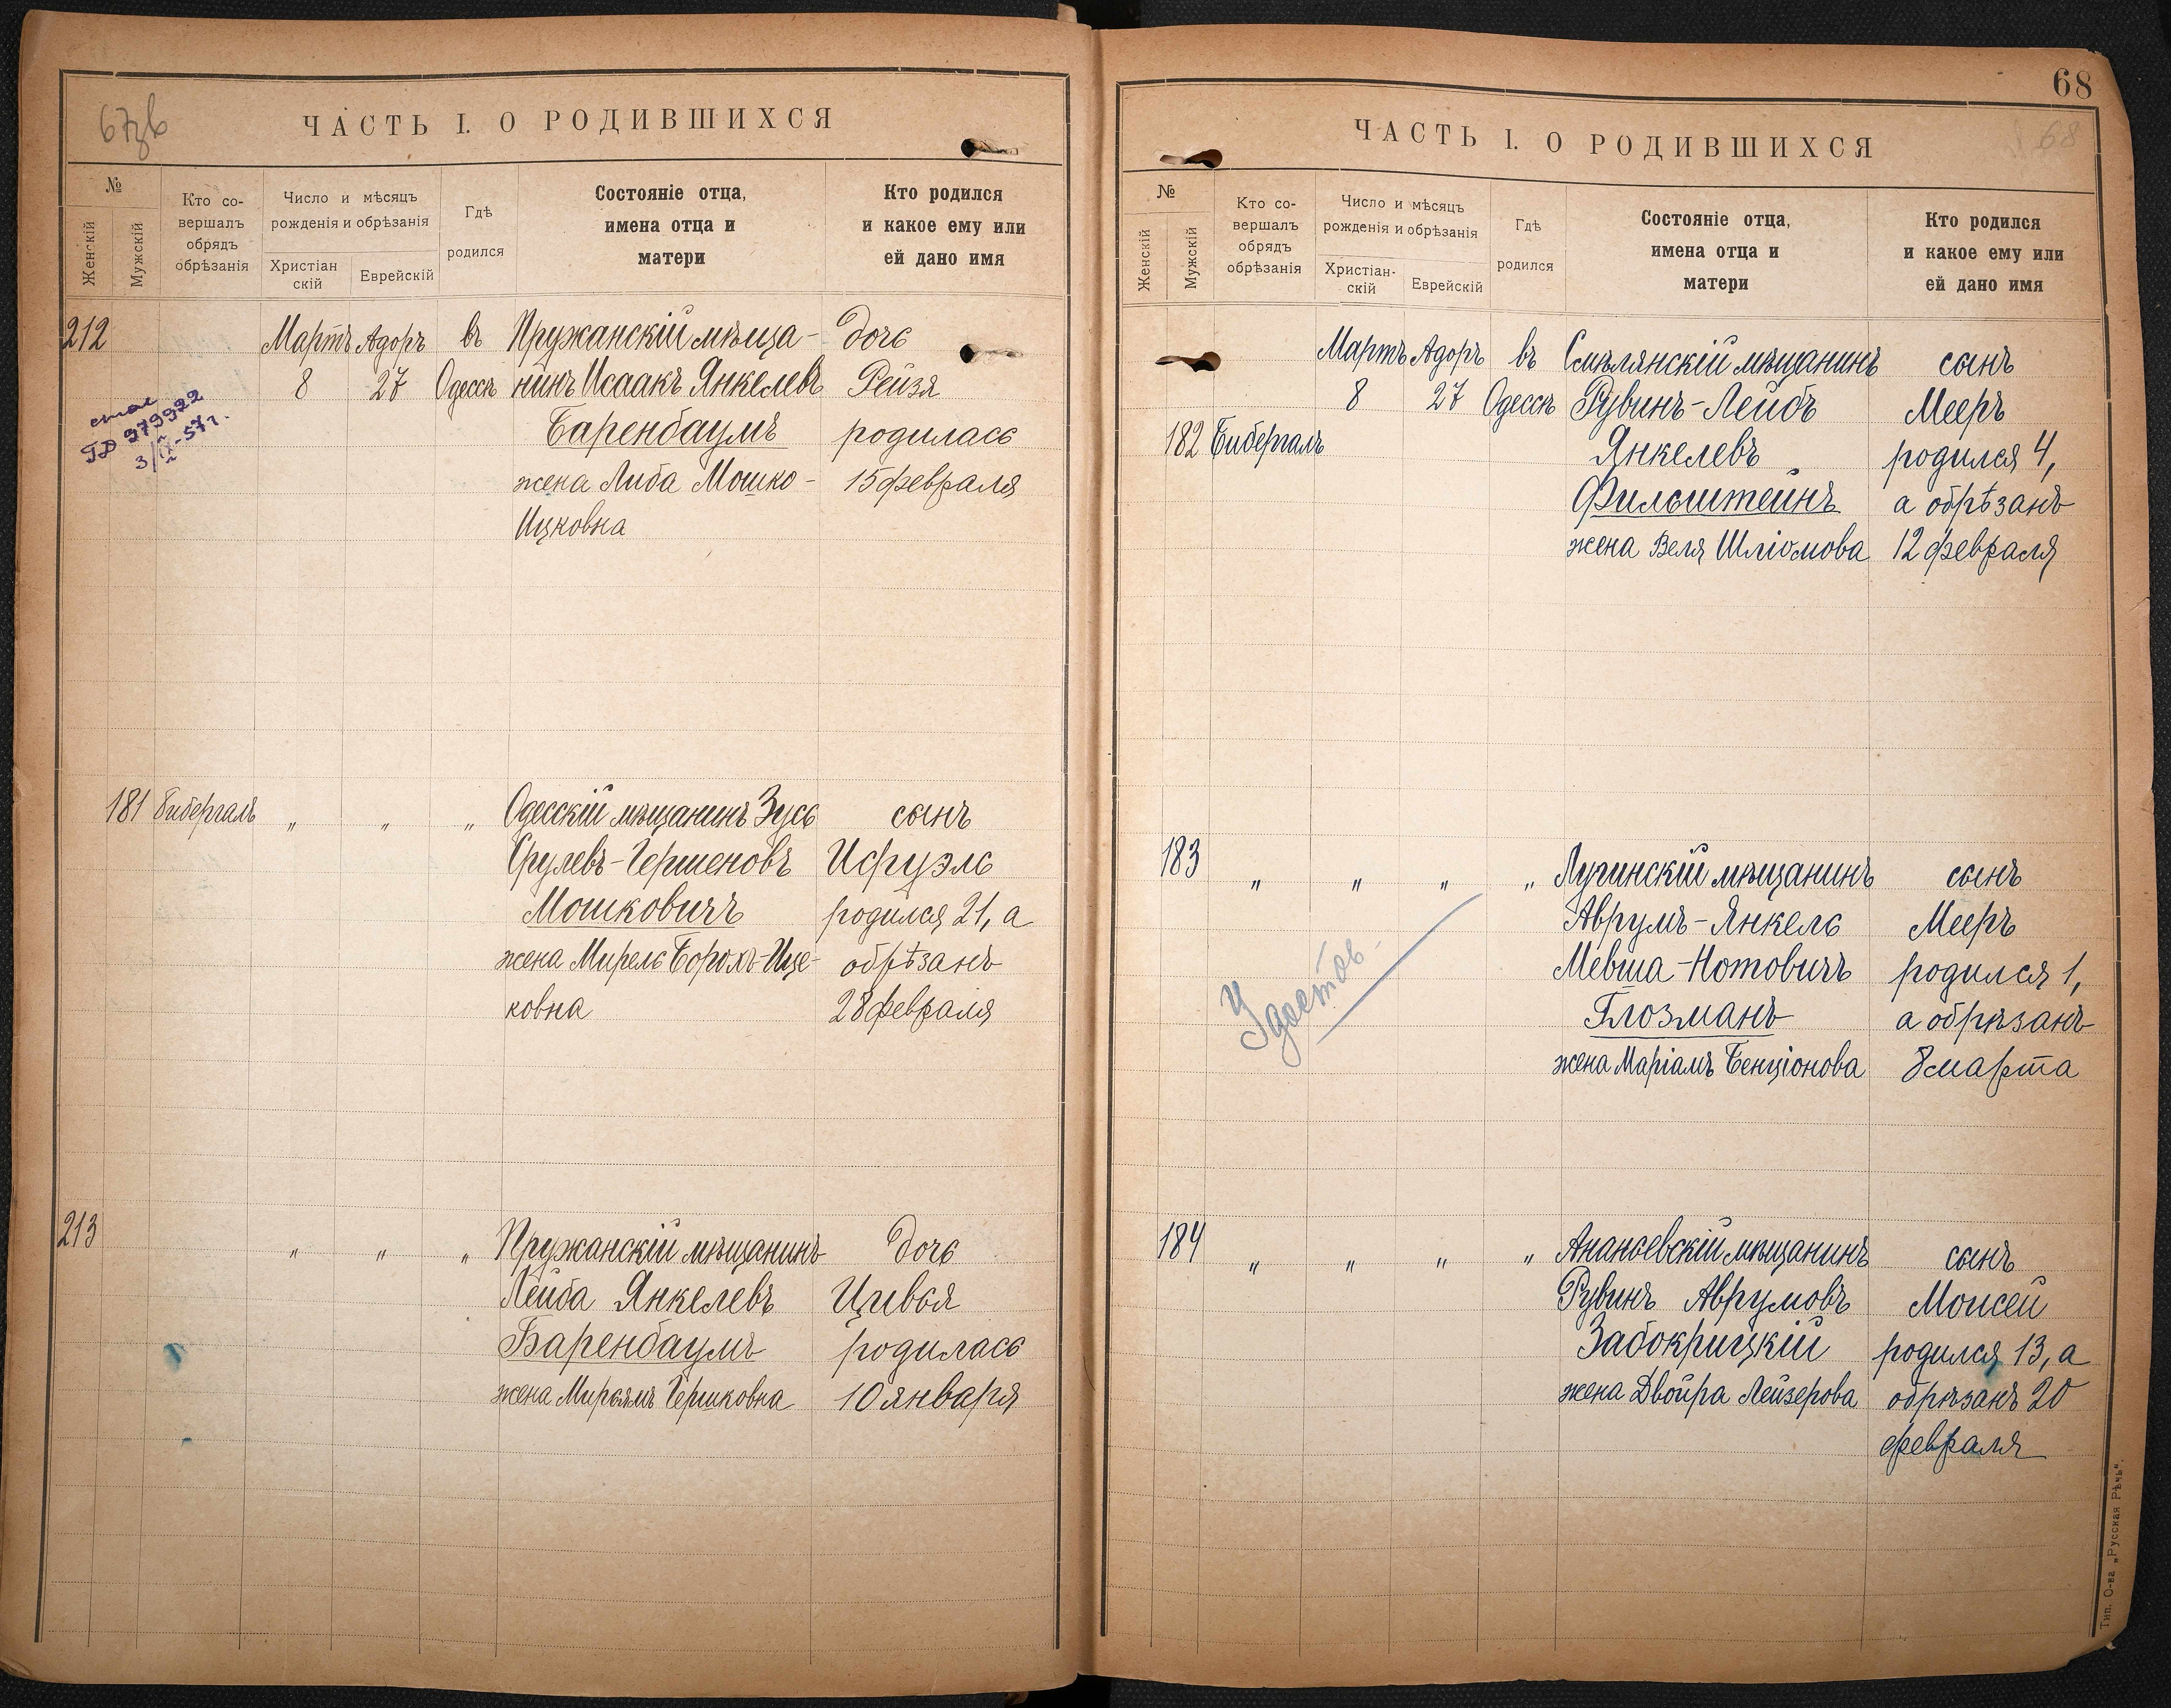 67зв
ЧАСТЬ I. О РОДИВШИХСЯ
№
Женскій
Мужскій
Кто со-
вершалъ
обрядъ
обрѣзанія
Число и мѣсяцъ
рожденія и обрѣзанія
Христіан
скій
Еврейскій
Гдѣ
родился
Состояніе отца,
имена отца и
матери
Кто родился
и какое ему или
ей дано имя
212 Мартъ Адоръ въ Пружанскій мѣща- дочь
8 27 Одессѣ нинъ Исаакъ Янкелевъ Рейзя
Баренбаумъ родилась
жена Либа Мошко- 15 февраля
Ицковна
ГБ 979922
3/IX-57г.
181 Бибергалъ " " " Одесскій мѣщанинъ Зусь сынъ
Срулевъ-Гершеновъ Исруэль
Мошковичъ родился 21, а
жена Мирель Борохъ-Ице- обрѣзанъ
ковна 28 февраля
213 " " " Пружанскій мѣщанинъ дочь
Лейба Янкелевъ Цивья
Баренбаумъ родилась
жена Мирьямъ Гершковна 10 января
68
68
ЧАСТЬ I. О РОДИВШИХСЯ
№
Женскій
Мужскій
Кто со-
вершалъ
обрядъ
обрѣзанія
Число и мѣсяцъ
рожденія и обрѣзанія
Христіан-
скій
Еврейскій
Гдѣ
родился
Состояніе отца,
имена отца и
матери
Кто родился
и какое ему или
ей дано имя
Мартъ Адоръ въ Смѣлянскій мѣщанинъ сынъ
8 27 Одессѣ Рувинъ-Лейбъ Мееръ
182 Бибергалъ Янкелевъ родился 4,
Фильштейнъ а обрѣзанъ
жена Веля Шліомова 12 февраля
183 " " " " Лугинскій мѣщанинъ сынъ
Аврумъ-Янкель Мееръ
Мевша-Нотовичъ родился 1,
Глозманъ а обрѣзанъ
жена Маріамъ Бенціонова 8 марта
Удостов.
184 " " " " Ананьевскій мѣщанинъ сынъ
Рувинъ Аврумовъ Моисей
Забокрицкій родился 13, а
жена Двойра Лейзерова обрѣзанъ 20
февраля
Тип. О-ва „Русская Рѣчь".